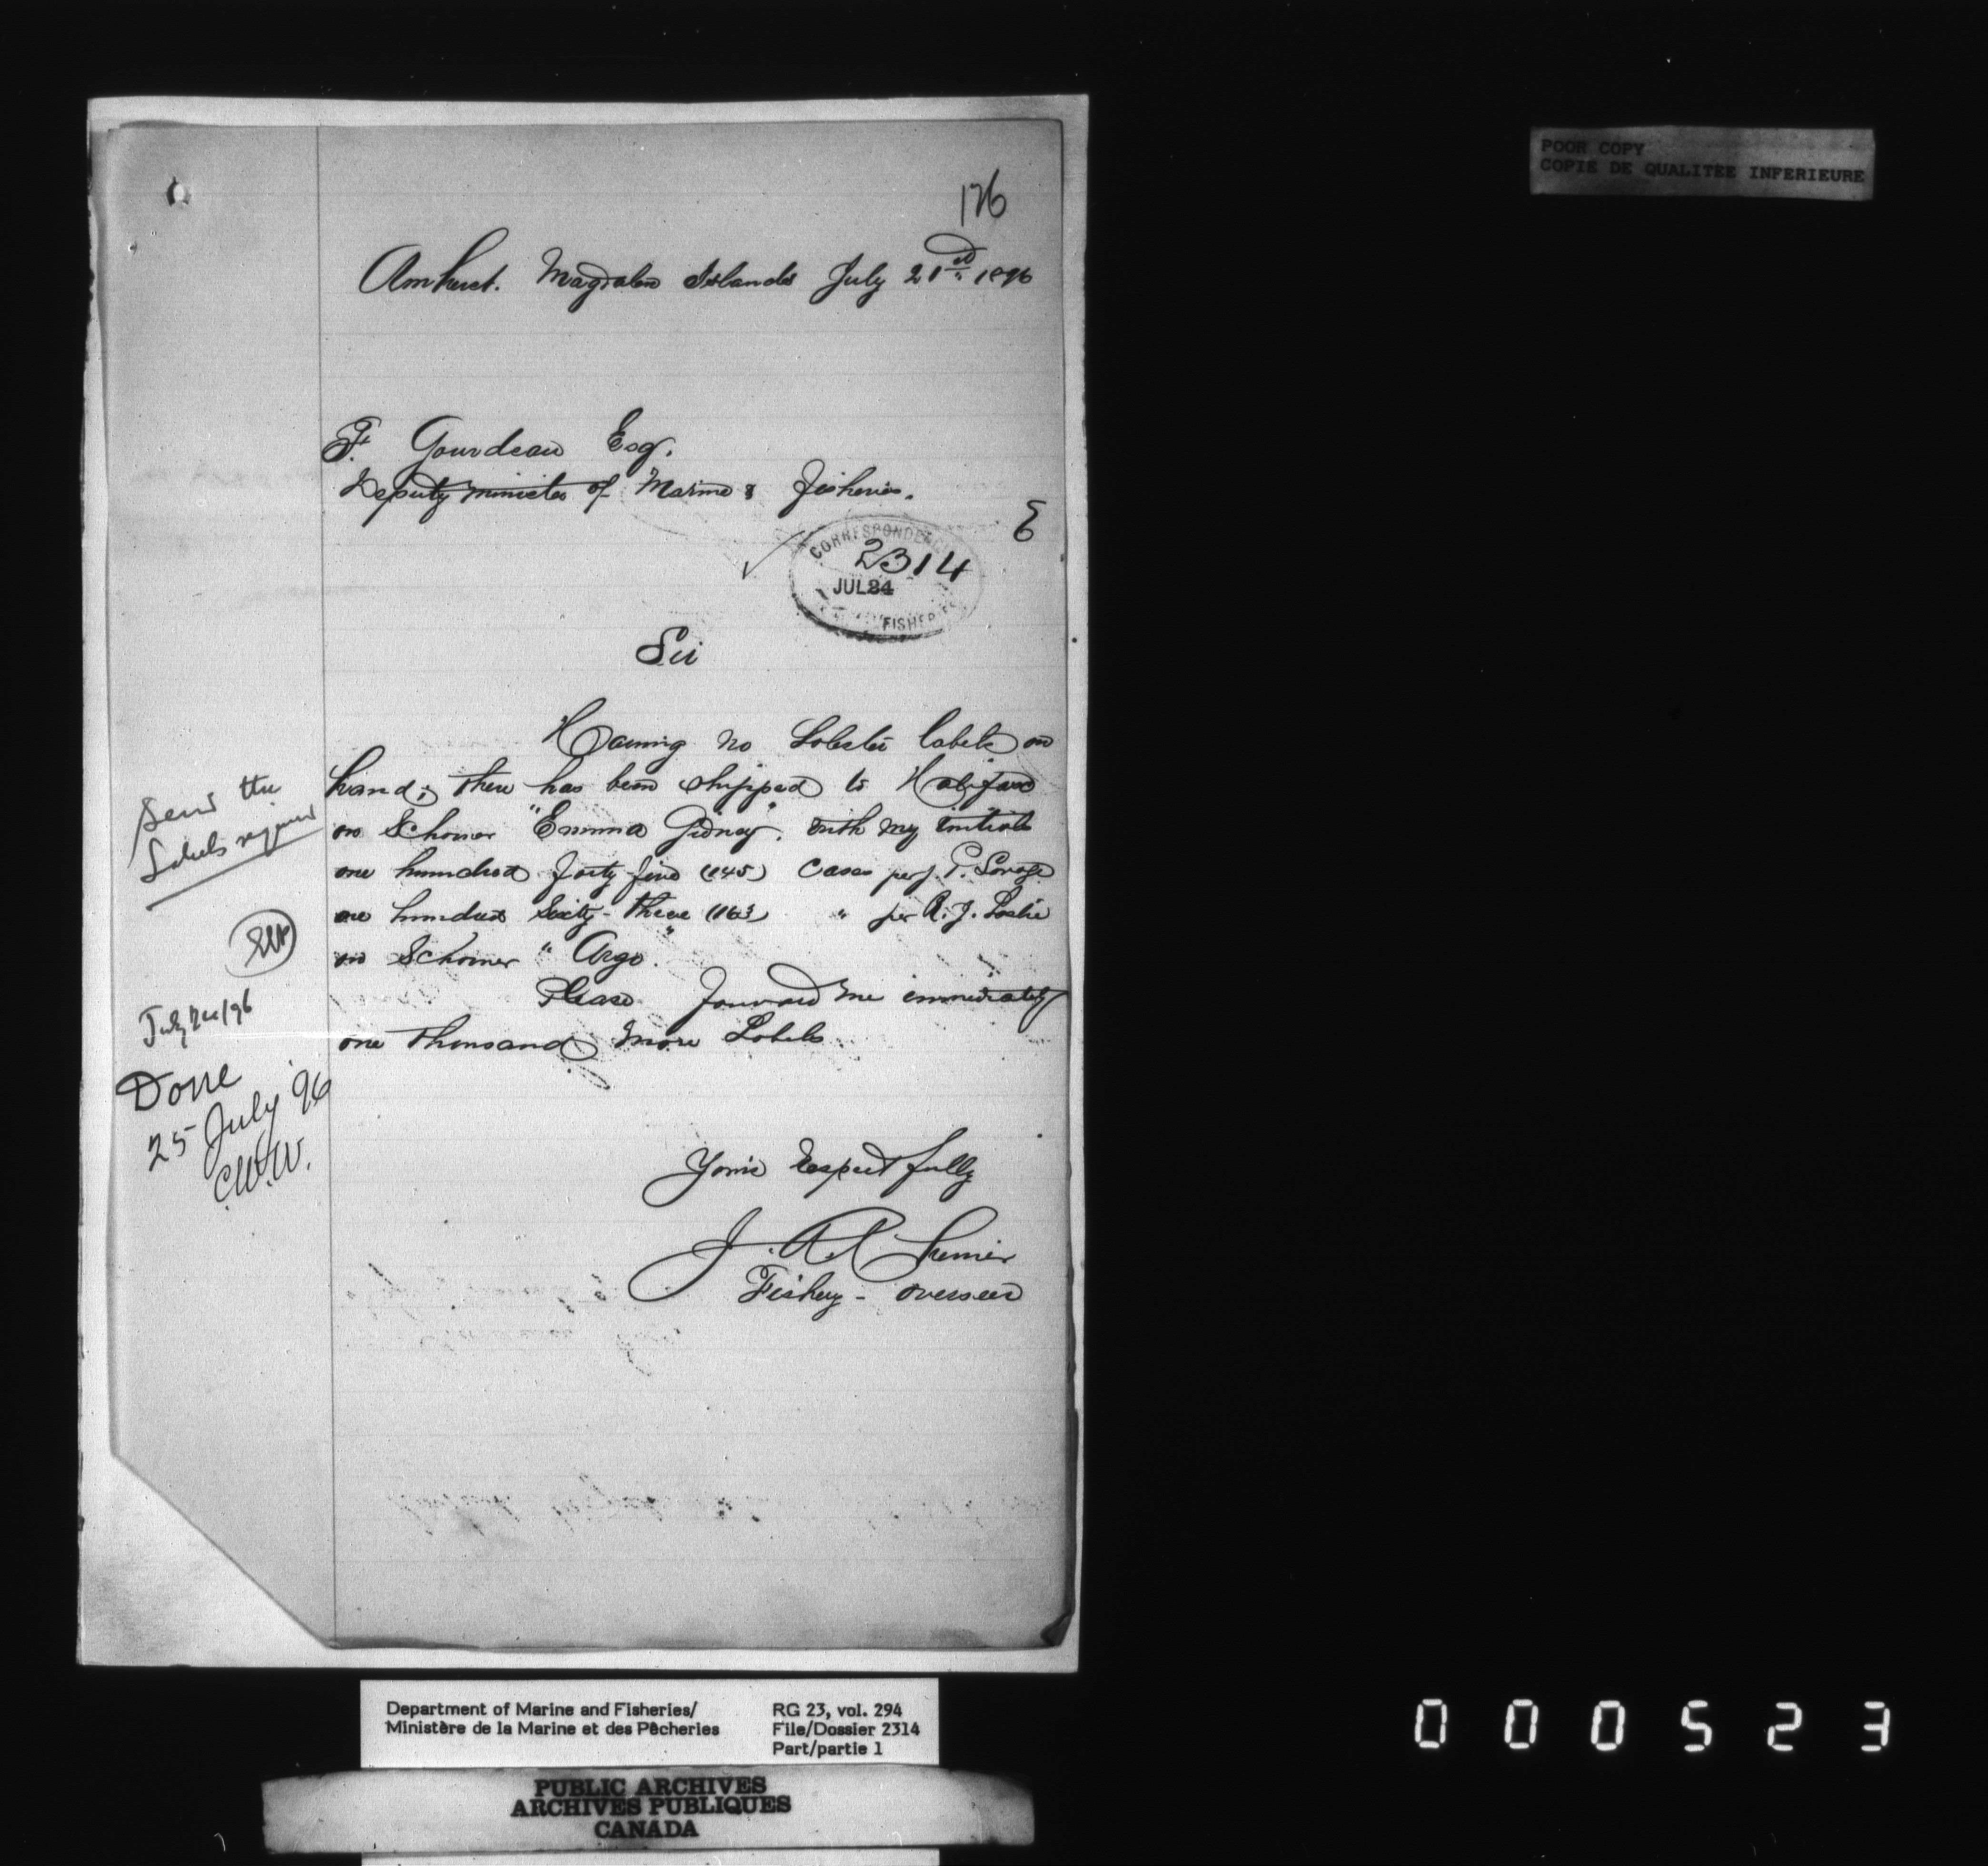 126
Amherst. Magdalen Islands July 21st 1896
F. Gourdeau Esq.
Deputy Minister of Marine & Fisheries.
E
CORRESPONDENCE
2314
JUL 24
FISHERIES
Sir
Having no Lobster labels on
hand; there has been shipped to Halifax
on Schooner "Emma Gidney". with my initials
one hundred forty five (145) Cases per J. P. Savage
one hundred Sixty-three (163) " per R. J. Leslie
on Schooner "Argo".
Please forward me immediately
one thousand more Labels.
Yours Respectfully
J. A.
Fishery - Overseer
Send the
Labels required
July 24/96
Done
25 July '96
C.W.W.
POOR COPY
COPIE DE QUALITEE INFERIEURE
Department of Marine and Fisheries/
Ministère de la Marine et des Pêcheries
RG 23, vol. 294
File/Dossier 2314
Part/partie 1
PUBLIC ARCHIVES
ARCHIVES PUBLIQUES
CANADA
000523